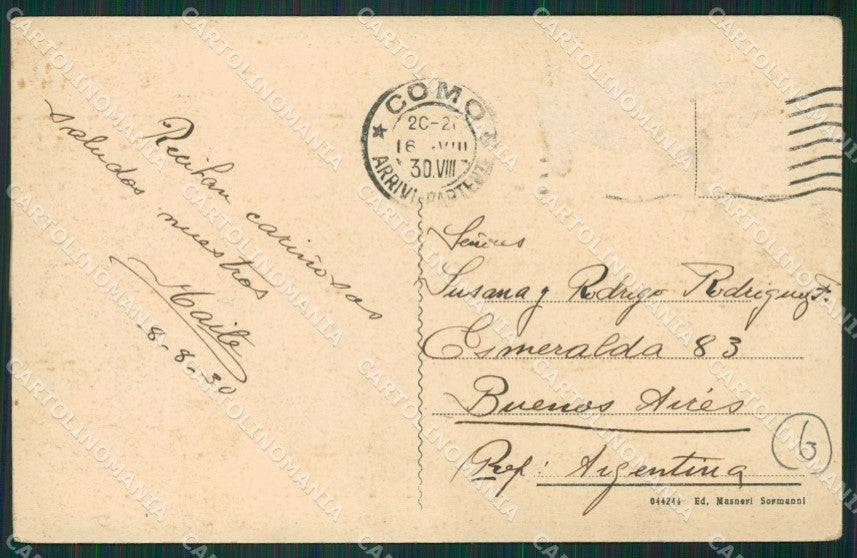 Reciban cariñosos
saludos nuestros
Maite
8-8-30
COMO
20-21
16 VIII
30.VIII
ARRIVI E PARTENZE
Señores
Susana y Rodrigo Rodriguez F.
Esmeralda 83
Buenos Aires
Rep: Argentina
6
044244 Ed. Masneri Sormanni
CARTOLINOMANIA